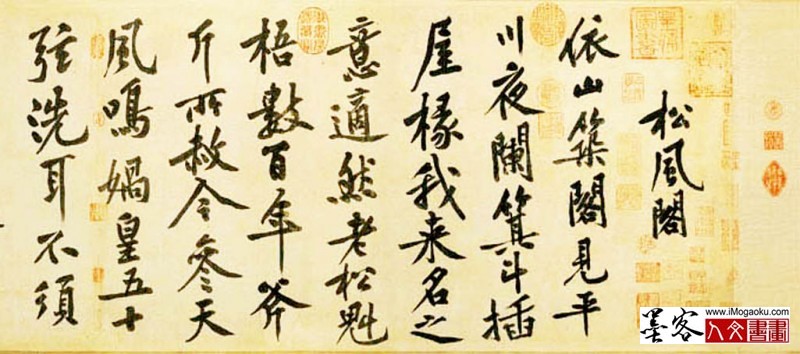 松風閣
依山築閣見平
川夜闌箕斗插
屋椽我来名之
意適然老松魁
梧數百年斧
斤所赦今參天
風鳴媧皇五十
弦洗耳不須
墨客
www.iMogaoku.com
人文書畫